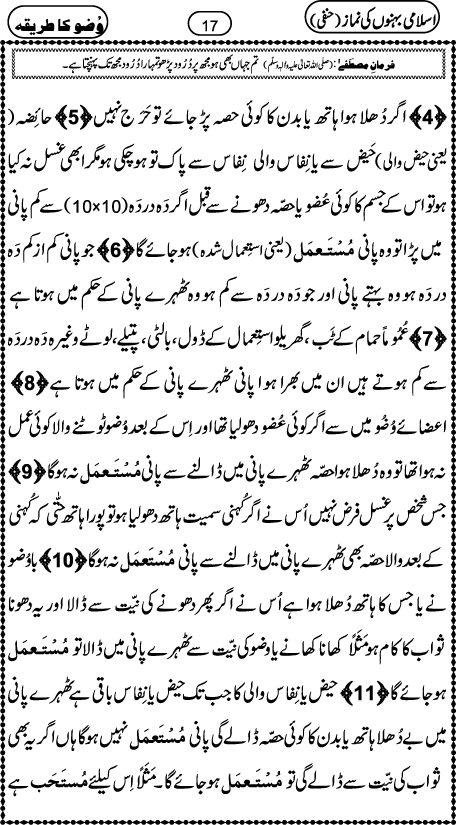 اسلامی بہنوں کی نماز (حنفی)
17
وُضو کا طریقہ
فرمانِ مصطَفٰے: (صلی اللہ تعالیٰ علیہ والہٖ وسلّم) تم جہاں بھی ہو مجھ پر دُرود پڑھو تمہارا دُرود مجھ تک پہنچتا ہے۔
﴿4﴾ اگر دُھلا ہوا ہاتھ یا بدن کا کوئی حصہ پڑ جائے تو حَرَج نہیں ﴿5﴾ حائِضہ (
یعنی حیض والی) حَیض سے یا نِفاس والی نِفاس سے پاک تو ہوچکی ہو مگر ابھی غسل نہ کیا
ہو تو اس کے جسم کا کوئی عُضو یا حصّہ دھونے سے قبل اگر دَہ دَردَہ (10×10) سے کم پانی
میں پڑا تو وہ پانی مُسْتَعمَل (یعنی استِعمال شدہ) ہو جائے گا ﴿6﴾ جو پانی کم از کم دَہ
در دَہ ہو وہ بہتے پانی اور جو دَہ در دَہ سے کم ہو وہ ٹھہرے پانی کے حکم میں ہوتا ہے
﴿7﴾ عُمُوماً حمام کے ٹَب، گھریلو استعمال کے ڈول، بالٹی، پتیلے، لوٹے وغیرہ دَہ دردَہ
سے کم ہوتے ہیں ان میں بھرا ہوا پانی ٹھہرے پانی کے حکم میں ہوتا ہے ﴿8﴾
اعضائے وُضُو میں سے اگر کوئی عُضو دھولیا تھا اور اِس کے بعد وُضو ٹوٹنے والا کوئی عمل
نہ ہوا تھا تو وہ دُھلا ہوا حصّہ ٹھہرے پانی میں ڈالنے سے پانی مُسْتَعمَل نہ ہوگا ﴿9﴾
جس شخص پر غسل فرض نہیں اُس نے اگر کُہنی سمیت ہاتھ دھولیا ہو تو پورا ہاتھ حتّٰی کہ کُہنی
کے بعد والا حصّہ بھی ٹھہرے پانی میں ڈالنے سے پانی مُسْتَعمَل نہ ہوگا ﴿10﴾ باوُضو
نے یا جس کا ہاتھ دُھلا ہوا ہے اُس نے اگر پھر دھونے کی نیّت سے ڈالا اور یہ دھونا
ثواب کا کام ہو مَثَلًا کھانا کھانے یا وضو کی نیّت سے ٹھہرے پانی میں ڈالا تو مُسْتَعمَل
ہو جائے گا ﴿11﴾ حیض یا نِفاس والی کا جب تک حیض یا نِفاس باقی ہے ٹھہرے پانی
میں بے دُھلا ہاتھ یا بدن کا کوئی حصّہ ڈالے گی پانی مُسْتَعمَل نہیں ہوگا ہاں اگر یہ بھی
ثواب کی نیّت سے ڈالے گی تو مُسْتَعمَل ہو جائے گا۔ مَثَلًا اِس کیلئے مُستَحَب ہے